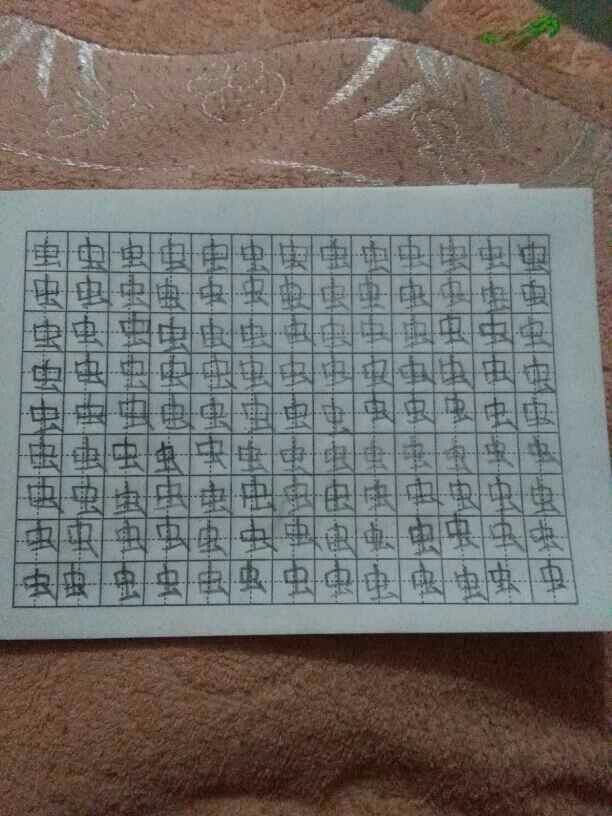 虫虫虫虫虫虫虫虫虫虫虫虫虫
虫虫虫虫虫虫虫虫虫虫虫虫虫
虫虫虫虫虫虫虫虫虫虫虫虫虫
虫虫虫虫虫虫虫虫虫虫虫虫虫
虫虫虫虫虫虫虫虫虫虫虫虫虫
虫虫虫虫虫虫虫虫虫虫虫虫虫
虫虫虫虫虫虫虫虫虫虫虫虫虫
虫虫虫虫虫虫虫虫虫虫虫虫虫
虫虫虫虫虫虫虫虫虫虫虫虫虫